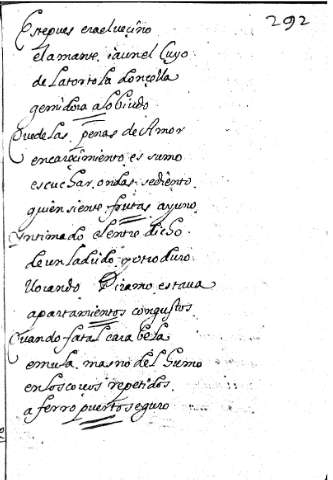 292
Este pues era el vecino
el amante iaun el Cuyo
de la tortola donçella
gemidora alo biudo
Que de las penas de Amor
encarecimiento es sumo
escuchar ondas sediento
quien siente frutas ayuno
Intimado el entre dicho
de un ladrido y otro duro
llorando Piramo estava
apartamientos con gustos
Quando fatal carabela
emula mas no del humo
en los corsos repetidos
aferro puerto seguro